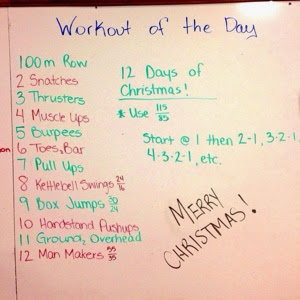 Workout of the Day
100m Row
2 Snatches
3 Thrusters
4 Muscle Ups
5 Burpees
6 Toes, Bar
7 Pull Ups
8 Kettlebell Swings 24/16
9 Box Jumps 30/24
10 Handstand Pushups
11 Ground, Overhead
12 Man Makers 55/35
12 Days of
Christmas!
* Use 115/85
Start @ 1 then 2-1, 3-2-1
4-3-2-1, etc.
MERRY
CHRISTMAS!
on